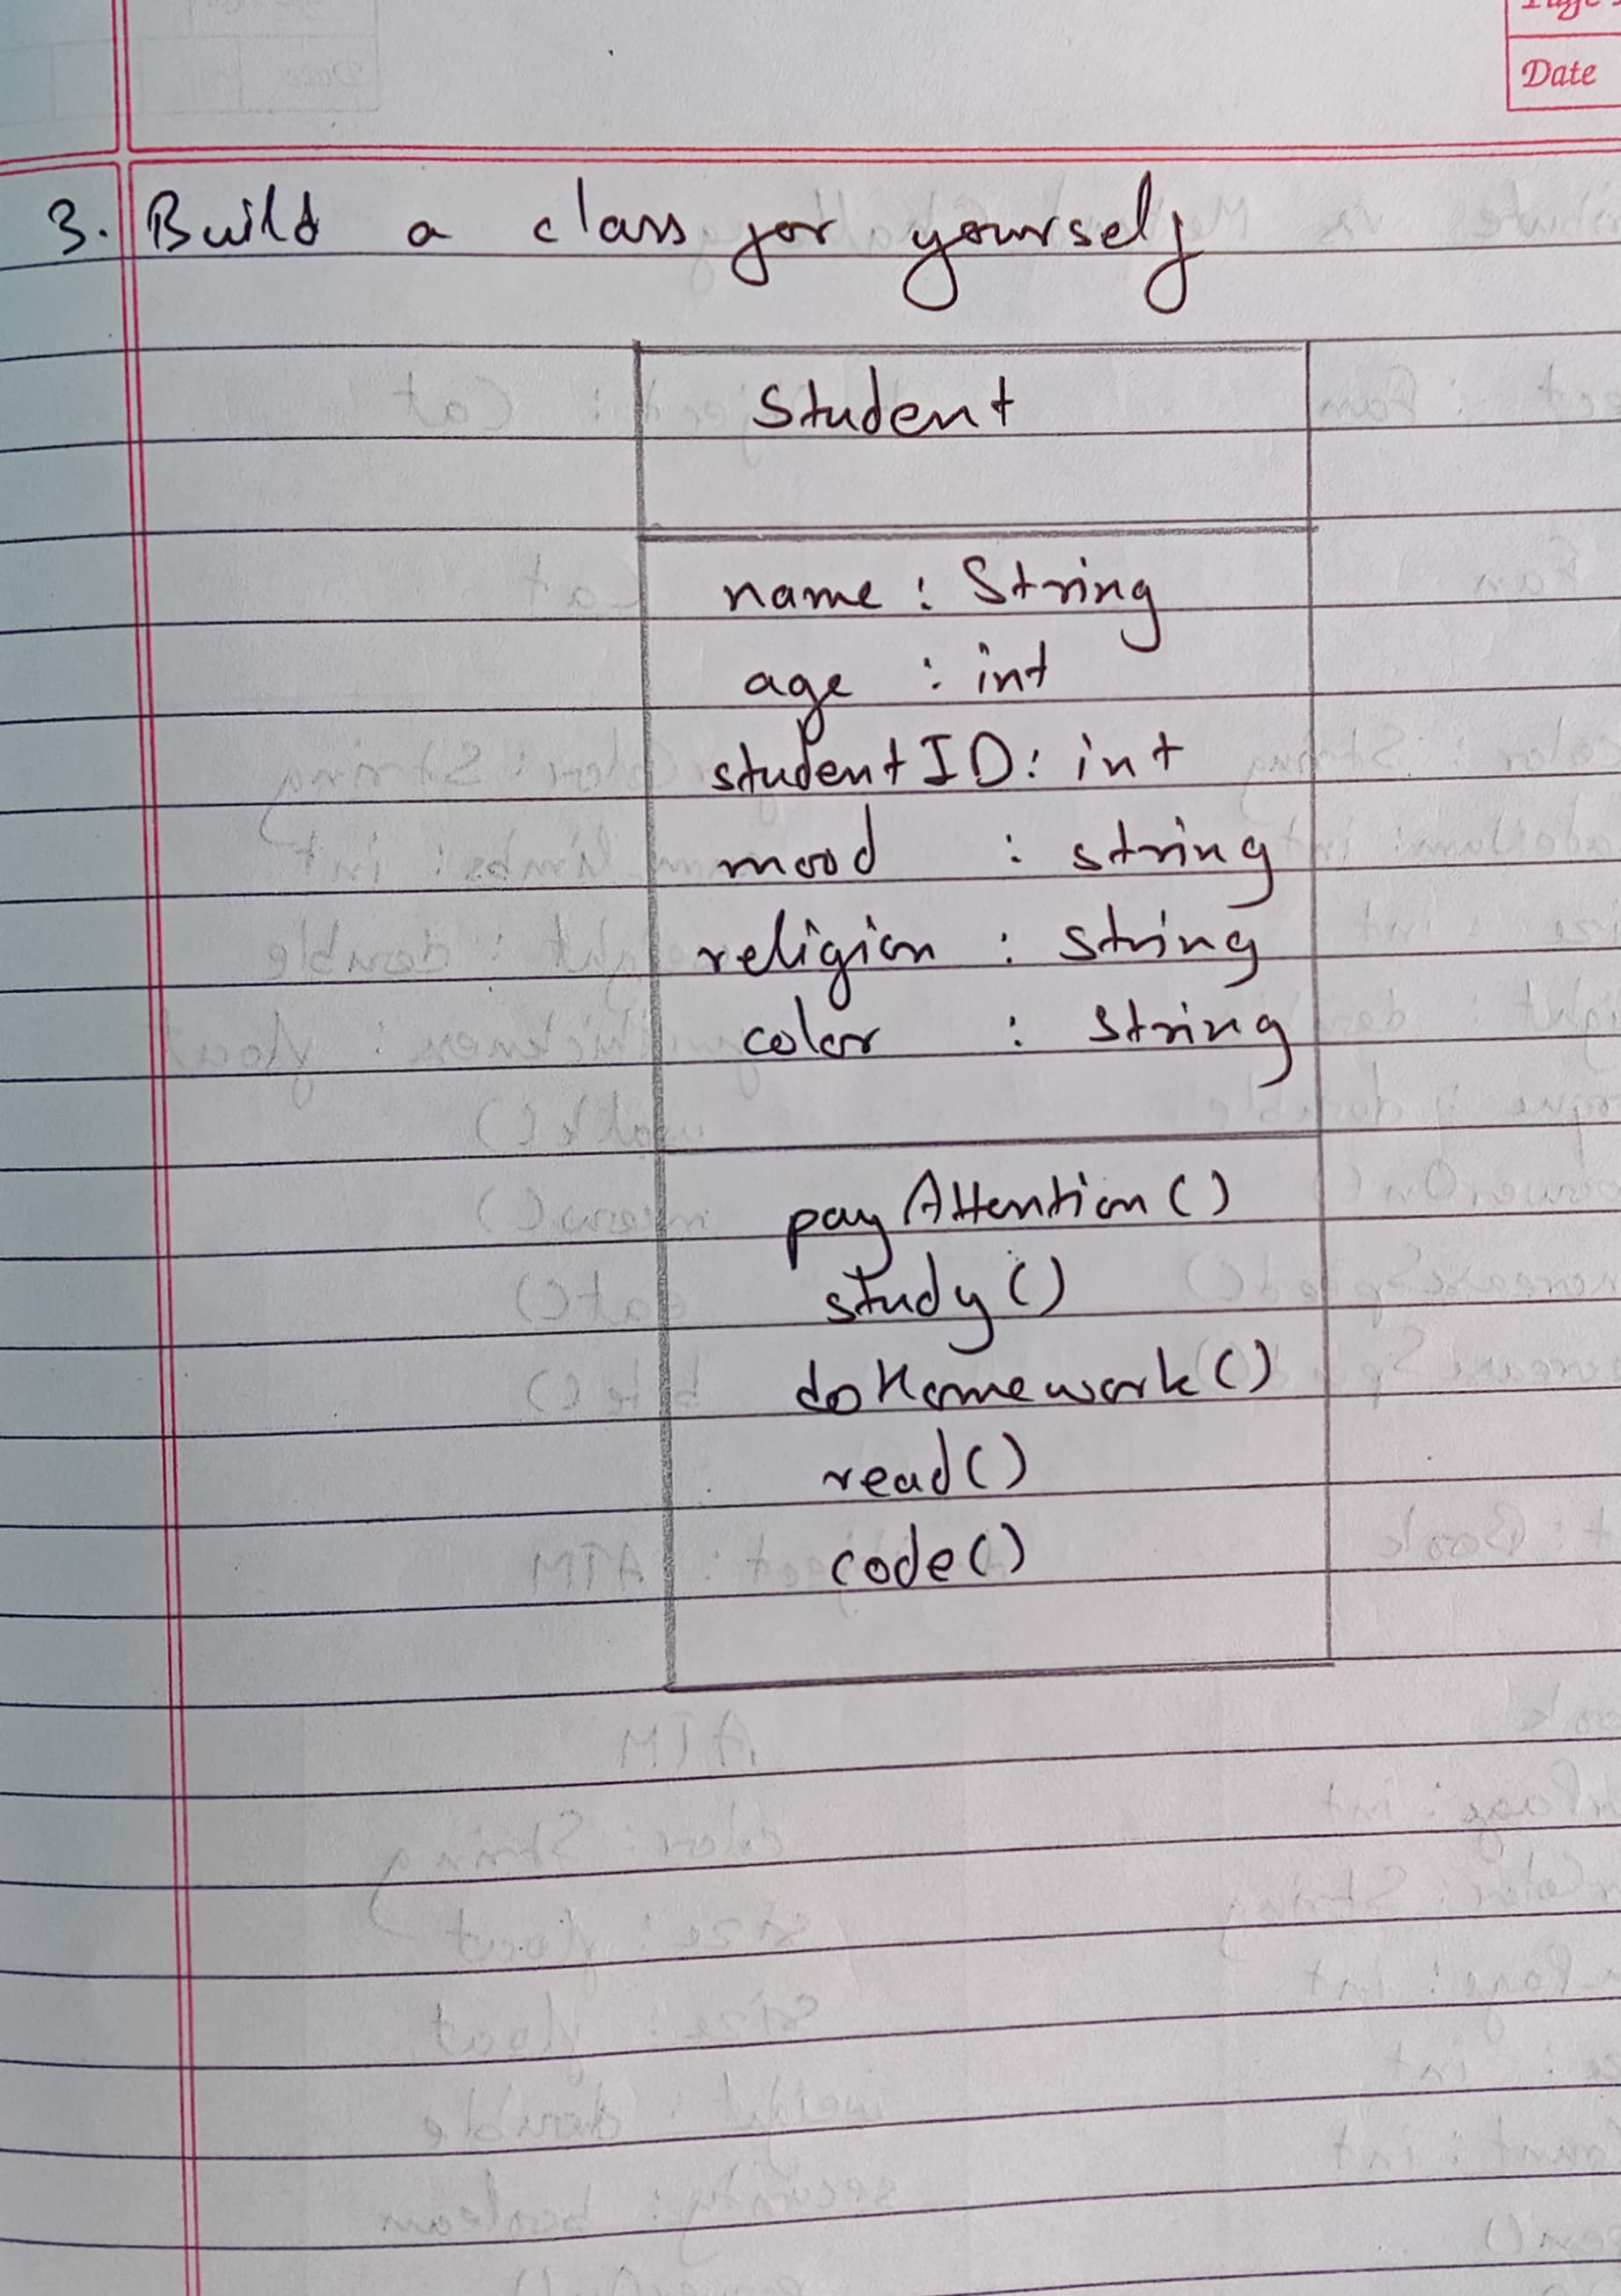 Date
3. Build a class for yourself
Student
name : String
age : int
studentID : int
mood : string
religion : string
color : string
payAttention()
study()
doHomework()
read()
code()